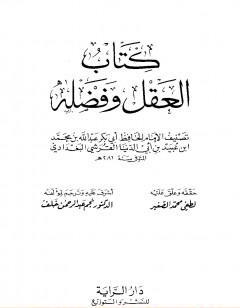 كتاب
العقل وفضله
تصنيف الإمام الحافظ أبي بكر عبد الله بن محمد
ابن عبيد بن أبي الدنيا القرشي البغدادي
المتوفى سنة ٢٨١هـ
حققه وعلق عليه
لطفي محمد الصغير
أشرف عليه وترجم لمؤلفه
الدكتور نجم عبد الرحمن خلف
دار الراية
للنشر والتوزيع